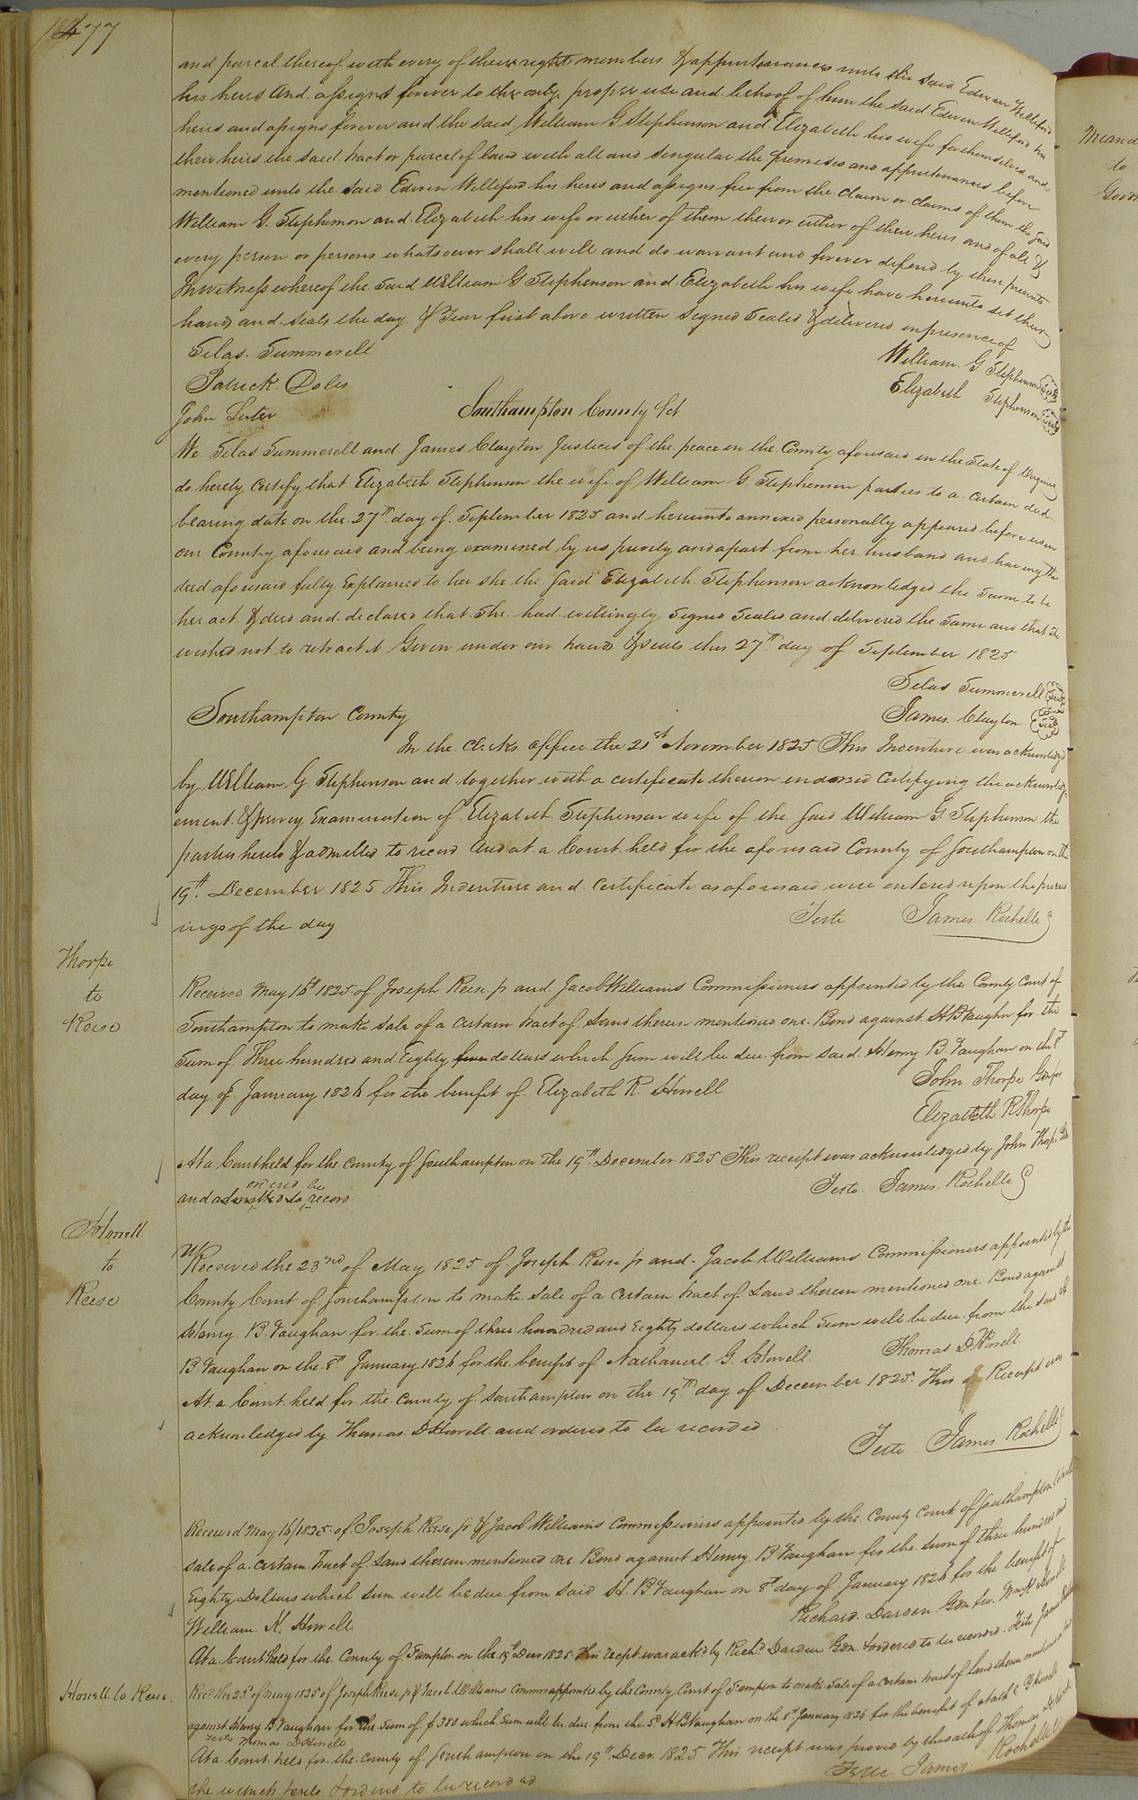 477
and parcel thereof with every of their rights members & appurtenances unto the said Edwin Williford
his heirs and assigns forever to the only proper use and behoof of him the said Edwin Williford his
heirs and assigns forever and the said William G Stephenson and Elizabeth his wife for themselves and
their heirs the said tract or parcel of land with all and singular the premises and appurtenances before
mentioned unto the said Edwin Williford his heirs and assigns free from the claim or claims of them the said
William G. Stephenson and Elizabeth his wife or either of them their or either of their heirs and of all &
every person or persons whatsoever shall will and do warrant and forever defend by these presents
In witness whereof the said William G Stephenson and Elizabeth his wife have hereunto set their
hands and seals the day & Year first above written Signed Sealed & delivered in presence of
Silas Summerell
William G Stephenson Seal
Patrick Doles
Elizabeth Stephenson Seal
John Luter
Southampton County Sct
We Silas Summerell and James Clayton Justices of the peace in the County aforesaid in the State of Virginia
do hereby Certify that Elizabeth Stephenson the wife of William G Stephenson parties to a certain deed
bearing date on the 27th day of September 1825 and hereunto annexed personally appeared before us in
our County aforesaid and being examined by us privily and apart from her husband and having the
deed aforesaid fully Explained to her she the said Elizabeth Stephenson acknowledged the same to be
her act & deed and declared that she had willingly Signed Sealed and delivered the same and that she
wished not to retract it Given under our hands & seals this 27th day of September 1825
Silas Summerell Seal
James Clayton Seal
Southampton County
In the Clerks office the 21st November 1825 This Indenture was acknowledged
by William G Stephenson and together with a certificate thereon endorsed Certifying the acknowledg-
ement & privy Examination of Elizabeth Stephenson wife of the said William G. Stephenson the
parties hereto & admitted to record And at a Court held for the aforesaid County of Southampton on the
19th December 1825 This Indenture and Certificate as aforesaid were entered upon the proceed
ings of the day
Teste James Rochelle
Thorpe
to
Reese
Received May 16th 1825 of Joseph Reese jr and Jacob Williams Commissioners appointed by the County Court of
Southampton to make sale of a certain tract of Land therein mentioned one Bond against H B Vaughn for the
Sum of Three hundred and Eighty dollars which sum will be due from said Henry B Vaughan on the 8th
day of January 1826 for the benefit of Elizabeth R. Howell
John Thorpe
Elizabeth R Thorpe
At a Court held for the County of Southampton on the 19th December 1825 This receipt was acknowledged by John Thorpe
and ordered to be record
Teste James Rochelle
Howell
to
Reese
Received the 23rd of May 1825 of Joseph Reese jr and Jacob Williams Commissioners appointed by the
County Court of Southampton to make Sale of a Certain tract of Land therein mentioned one Bond against
Henry B. Vaughan for the sum of three hundred and Eighty dollars which sum will be due from the said H
B Vaughan on the 8th January 1826 for the benefit of Nathaniel G. Howell
Thomas D Howell
At a Court held for the County of Southampton on the 19th day of December 1825. This Receipt was
acknowledged by Thomas D Howell and ordered to be recorded
Teste James Rochelle
Received May 16/1825 of Joseph Reese jr & Jacob Williams Commissioners appointed by the County Court of Southampton
sale of a certain tract of Land therein mentioned one Bond against Henry B Vaughan for the sum of three hundred and
Eighty Dollars which sum will be due from said H. B Vaughan on 8th day of January 1826 for the benefit of
William K. Howell
Richard Darden Gdn for Wm K Howell
At a Court held for the County of S'ampton on the 19th Decr 1825 this recept was ackd by Richd Darden Gdn & ordered to be record. Teste James
Howell to Reese
Recd the 23d of May 1825 of Joseph Reese jr & Jacob Williams Comms appointed by the County Court of S'ampton to make Sale of a certain tract of land therein mentioned
against Henry B Vaughan for the sum of $380 which sum will be due from the sd H B Vaughan on the 8th January 1826 for the benefit of
Teste Thomas D Howell
At a Court held for the County of Southampton on the 19th Decr. 1825 This receipt was proved by the oath of Thomas D Howell
the witness hereto & ordered to be recorded
Teste James Rochelle